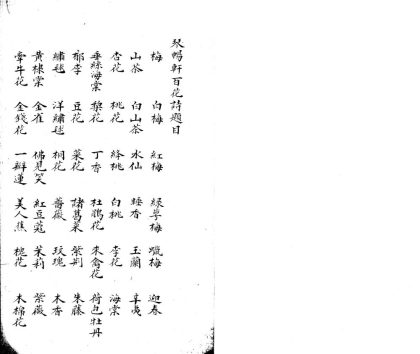 琴暢軒百花詩題目
梅 白梅 紅梅 綠萼梅 蠟梅 迎春
山茶 白山茶 水仙 睡香 玉蘭 辛夷
杏花 桃花 絳桃 白桃 李花 海棠
垂絲海棠 梨花 丁香 杜鵑花 來禽花 荷包牡丹
郁李 豆花 菜花 諸葛菜 紫荆 朱藤
繡毬 洋繡毬 桐花 薔薇 玫瑰 木香
黃棣棠 金雀 佛見笑 紅豆蔻 茉莉 紫薇
牽牛花 金錢花 一瓣蓮 美人蕉 槐花 木棉花